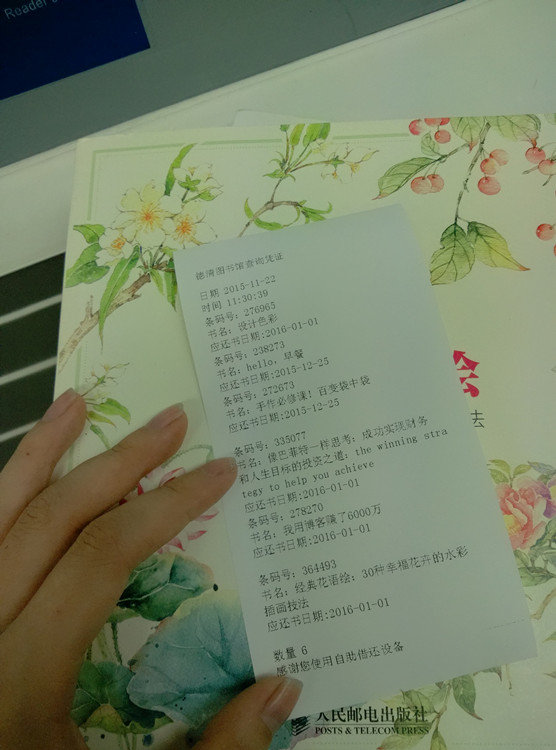 Reader
德清图书馆查询凭证
日期 2015-11-22
时间 11:30:39
条码号: 276965
书名: 设计色彩
应还书日期:2016-01-01
条码号: 238273
书名: hello, 早餐
应还书日期:2015-12-25
条码号: 272673
书名: 手作必修课! 百变袋中袋
应还书日期:2015-12-25
条码号: 335077
书名: 像巴菲特一样思考: 成功实现财务
和人生目标的投资之道: the winning stra
tegy to help you achieve
应还书日期:2016-01-01
条码号: 278270
书名: 我用博客赚了6000万
应还书日期:2016-01-01
条码号: 364493
书名: 经典花语绘: 30种幸福花卉的水彩
插画技法
应还书日期:2016-01-01
数量 6
感谢您使用自助借还设备
绘
法
人民邮电出版社
POSTS & TELECOM PRESS